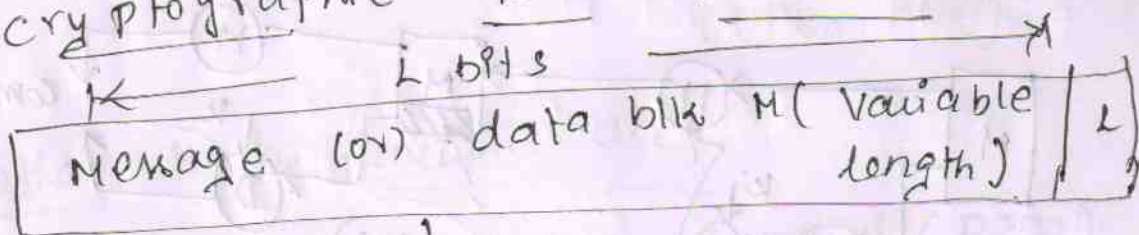 Cryptographic
L bits
Message (or) data blk M( Variable length) L